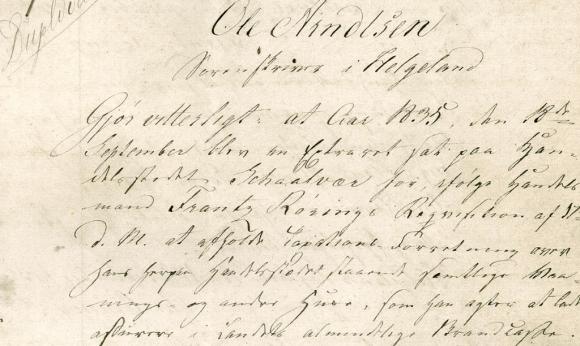 Duplicat
Ole Arndtsen
Sorenskriver i Helgeland
Gjör vitterligt: at Aar 1835, den 18de
September blev en Extraret sat paa Han-
delsstedet Schaalvær for, ifølge Handels-
mand Frantz Rönings Reqvisition af
d. M. at afholde Taxations-Forretning over
hans herpaa Handelsstedet staaende samtlige Vaa-
nings- og andre Huse, som han agter at lade
assurere i Landets almindelige Brandcasse.